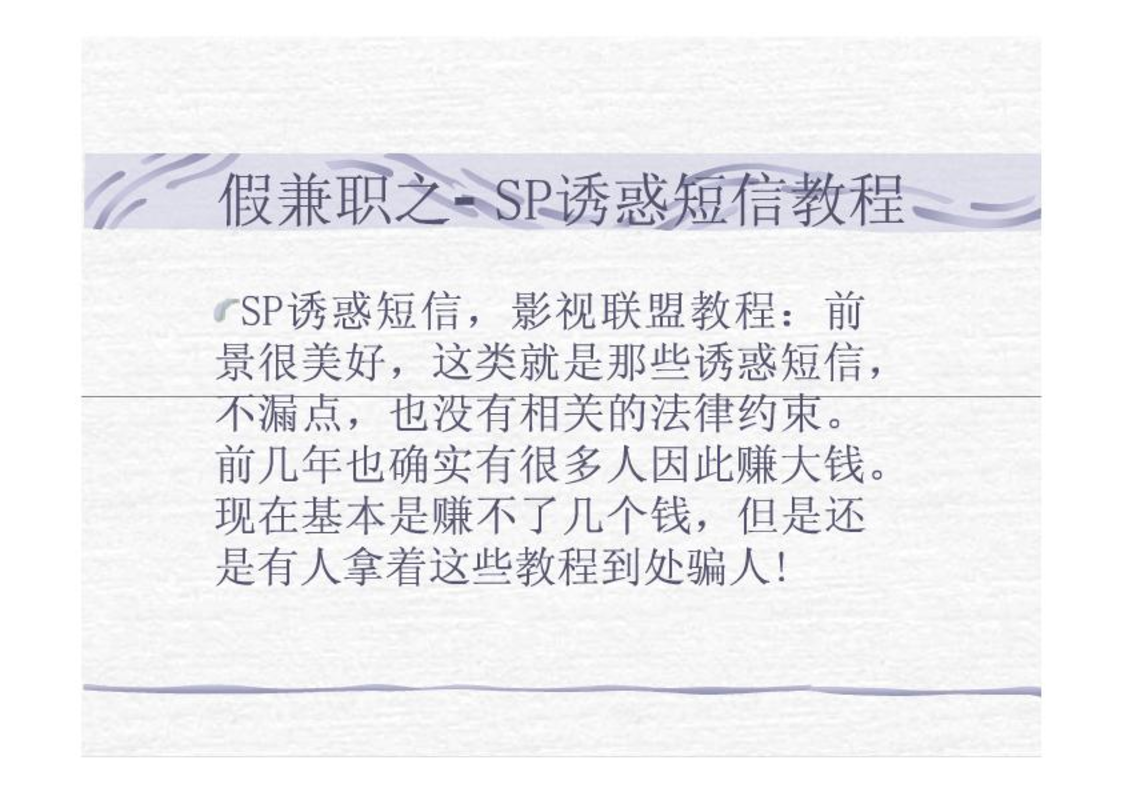 假兼职之-SP诱惑短信教程
SP诱惑短信，影视联盟教程：前
景很美好，这类就是那些诱惑短信，
不漏点，也没有相关的法律约束。
前几年也确实有很多人因此赚大钱。
现在基本是赚不了几个钱，但是还
是有人拿着这些教程到处骗人!